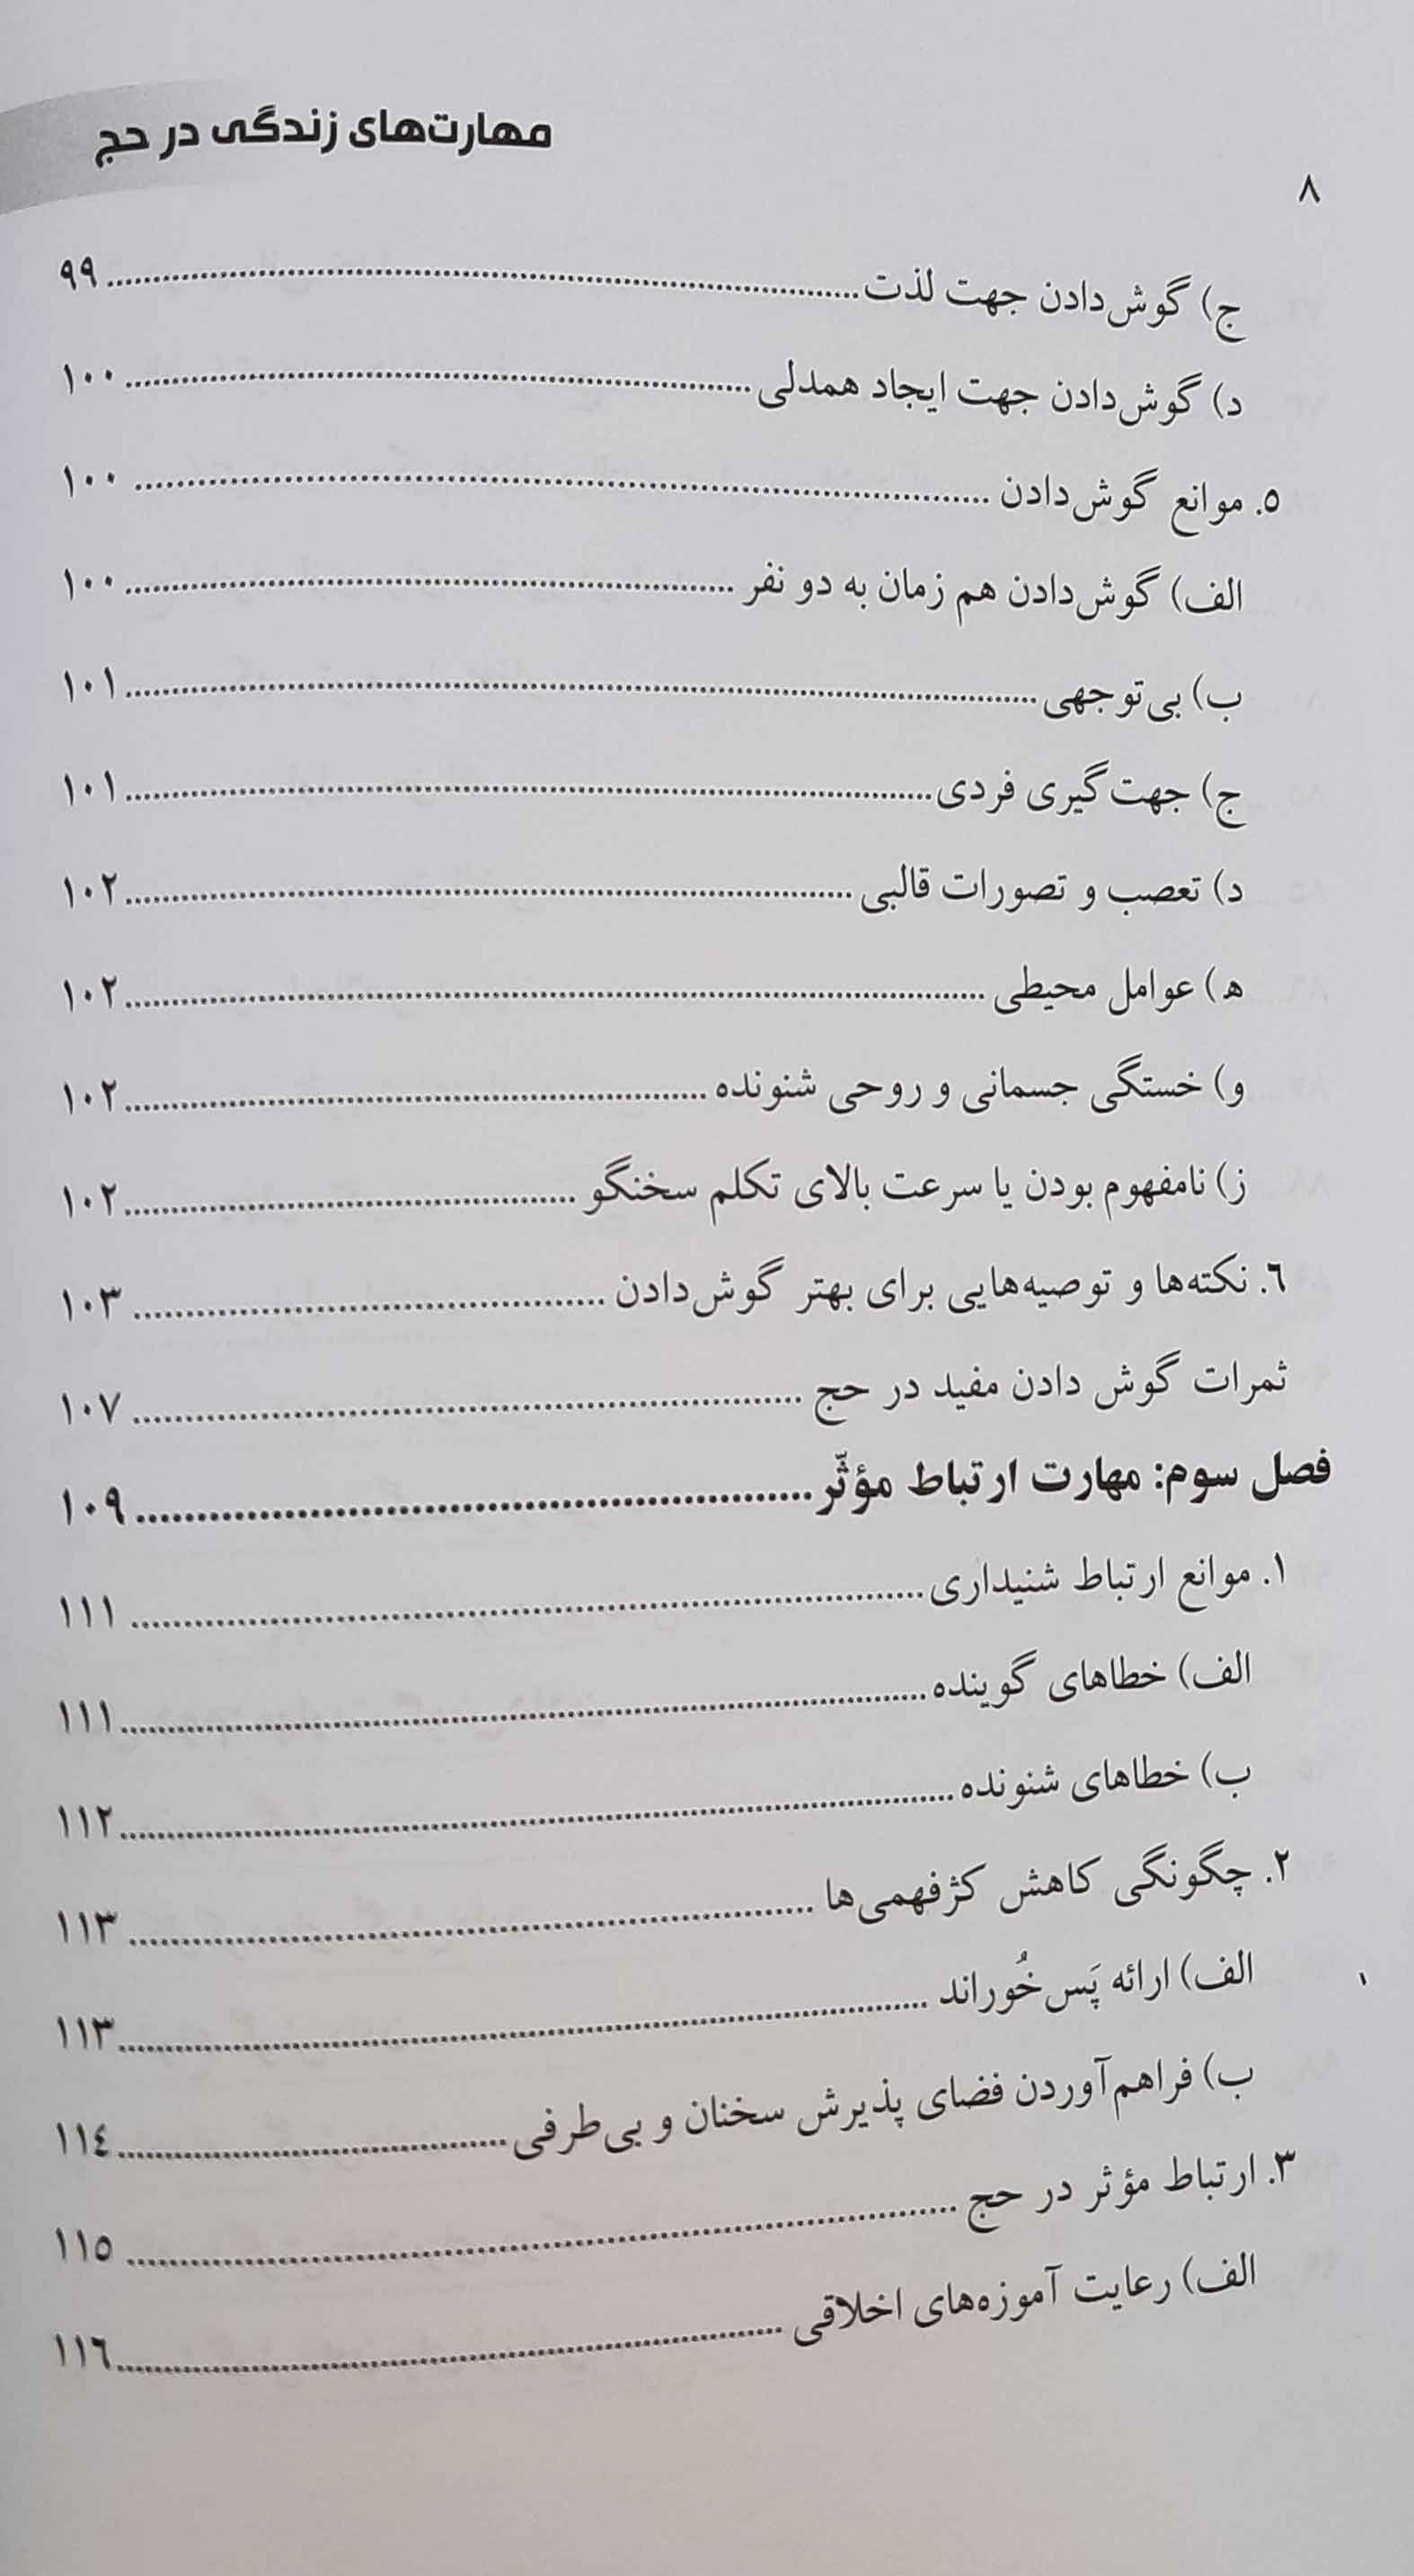 مهارت‌های زندگی در حج
۸
ج) گوش‌دادن جهت لذت ................ ۹۹
د) گوش‌دادن جهت ایجاد همدلی ................ ۱۰۰
۵. موانع گوش‌دادن ................ ۱۰۰
الف) گوش‌دادن هم زمان به دو نفر ................ ۱۰۰
ب) بی‌توجهی ................ ۱۰۱
ج) جهت‌گیری فردی ................ ۱۰۱
د) تعصب و تصورات قالبی ................ ۱۰۲
ه) عوامل محیطی ................ ۱۰۲
و) خستگی جسمانی و روحی شنونده ................ ۱۰۲
ز) نامفهوم بودن یا سرعت بالای تکلم سخنگو ................ ۱۰۲
۶. نکته‌ها و توصیه‌هایی برای بهتر گوش‌دادن ................ ۱۰۳
ثمرات گوش دادن مفید در حج ................ ۱۰۷
فصل سوم: مهارت ارتباط مؤثّر ................ ۱۰۹
۱. موانع ارتباط شنیداری ................ ۱۱۱
الف) خطاهای گوینده ................ ۱۱۱
ب) خطاهای شنونده ................ ۱۱۲
۲. چگونگی کاهش کژفهمی‌ها ................ ۱۱۳
الف) ارائه پَس‌خُوراند ................ ۱۱۳
ب) فراهم‌آوردن فضای پذیرش سخنان و بی‌طرفی ................ ۱۱۴
۳. ارتباط مؤثر در حج ................ ۱۱۵
الف) رعایت آموزه‌های اخلاقی ................ ۱۱۶